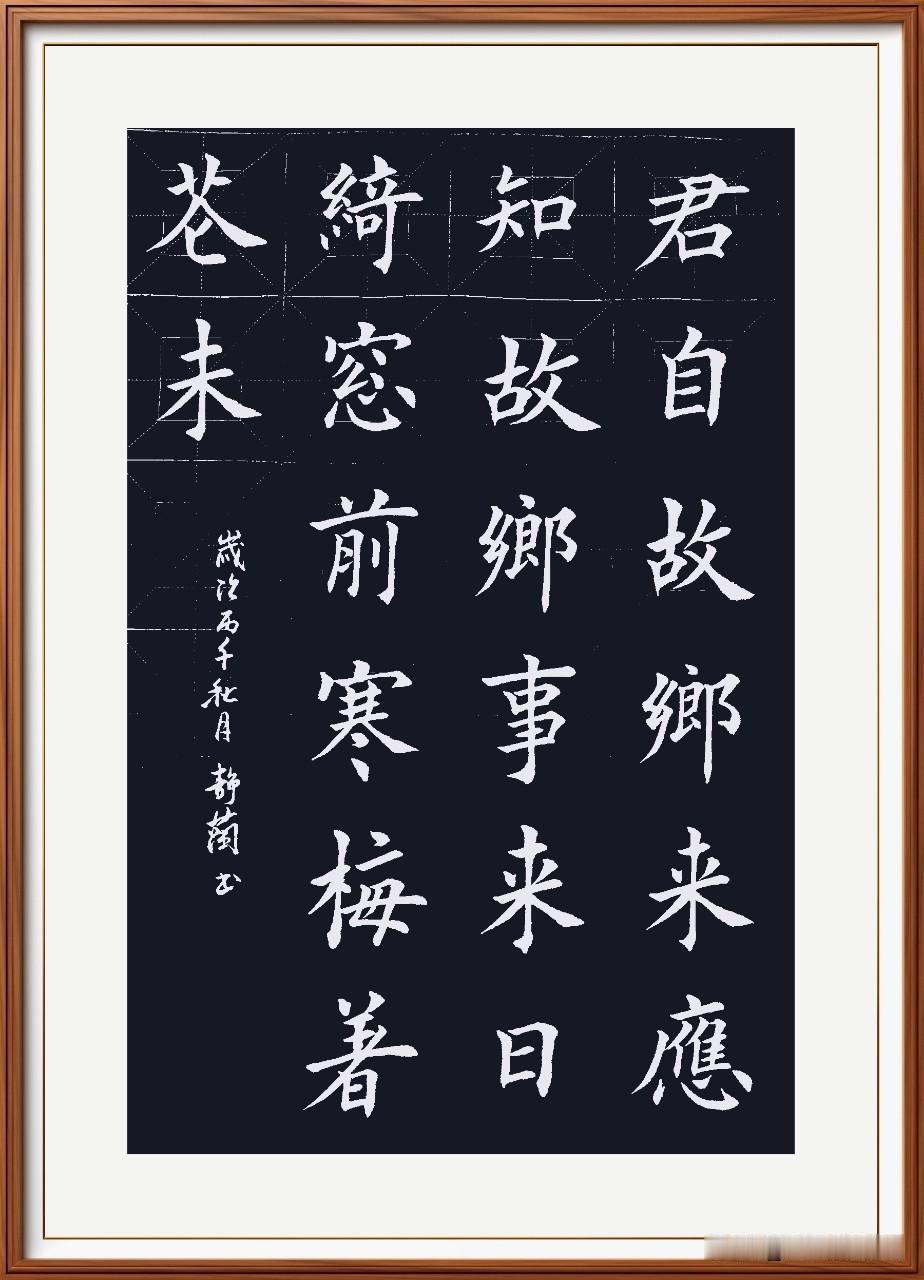 君自故鄉来應
知故鄉事来日
綺窓前寒梅著
苍未
歲次丙午秋月 静蘭书